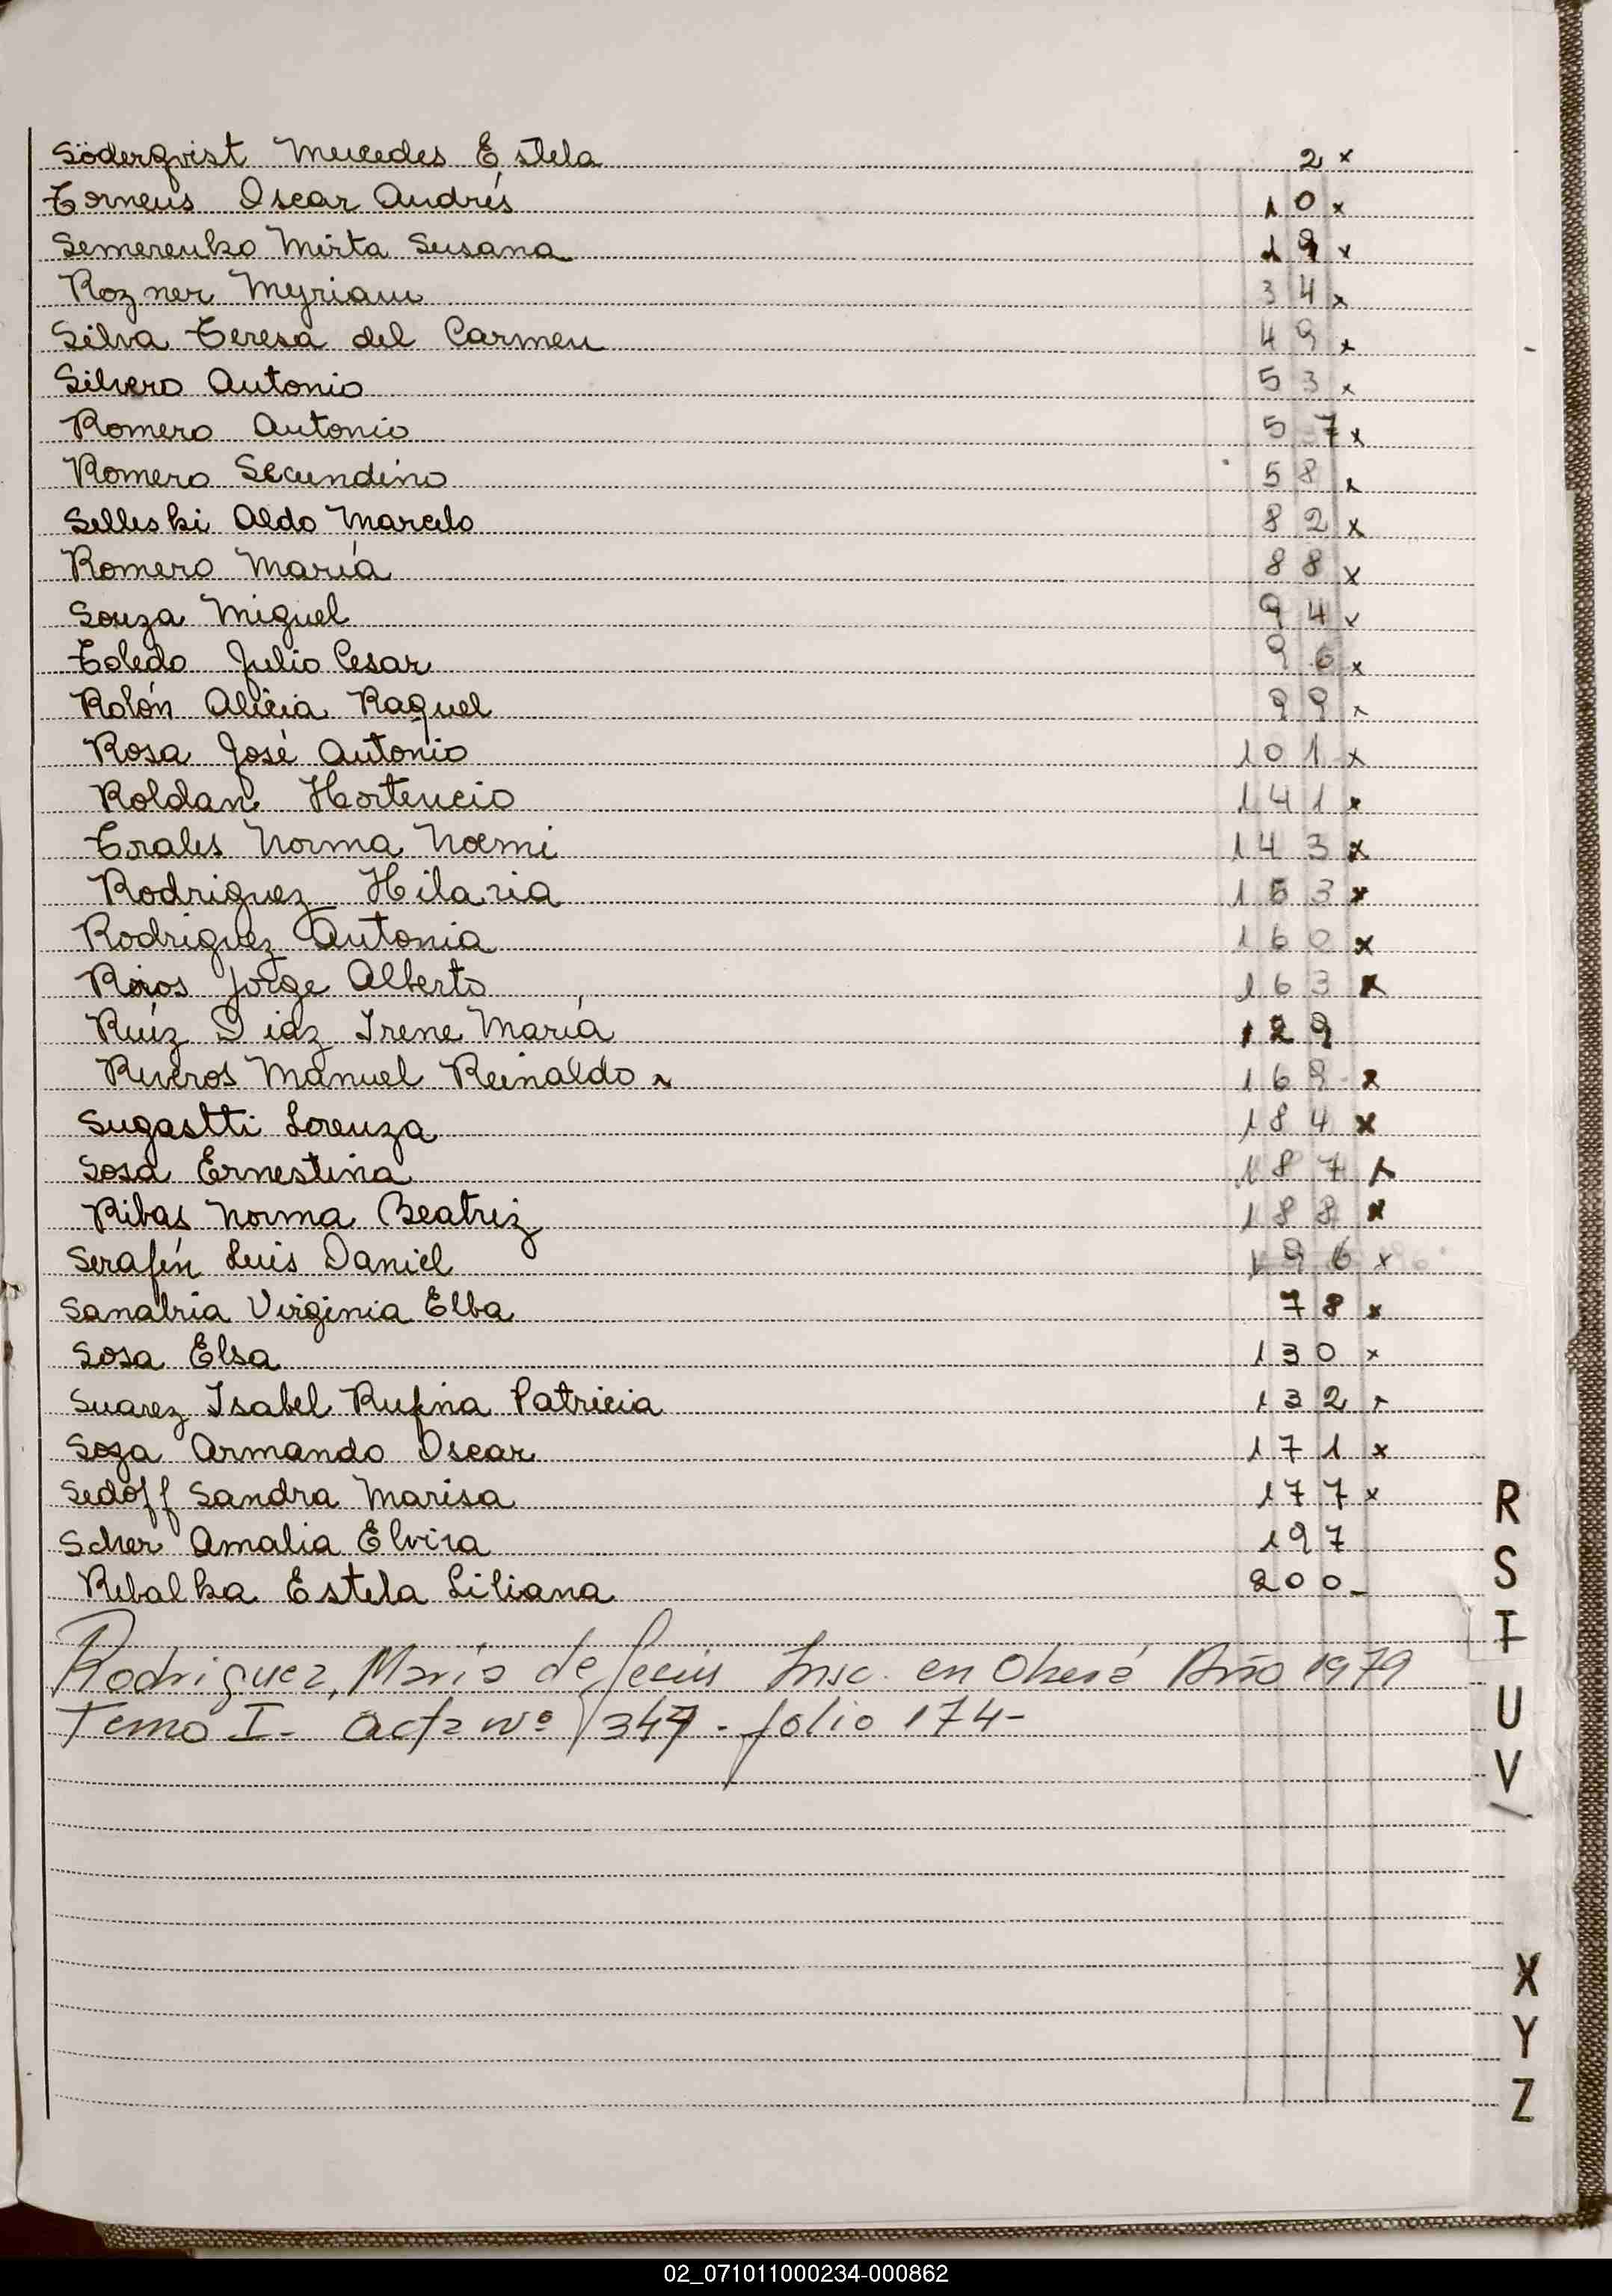 Söderqvist Mercedes Estela 2 x
Torneus Oscar Andrés 10 x
Semerenko Mirta Susana 19 x
Rozner Myriam 34 x
Silva Teresa del Carmen 49 x
Silvero Antonio 53 x
Romero Antonio 57 x
Romero Secundino 58 x
Selleski Aldo Marcelo 82 x
Romero María 88 x
Souza Miguel 94 x
Toledo Julio Cesar 96 x
Rolón Alicia Raquel 99 x
Rosa José Antonio 101 x
Roldan Hortencio 141 x
Trales Norma Noemi 143 x
Rodriguez Hilaria 153 x
Rodriguez Antonia 160 x
Rojos Jorge Alberto 163 x
Ruíz Diaz Irene María 129
Riveros Manuel Reinaldo 169 x
Sugastti Lorenza 184 x
Sosa Ernestina 187 x
Ribas Norma Beatriz 188 x
Serafín Luis Daniel 196 x
Sanabria Virginia Elba 78 x
Sosa Elsa 130 x
Suarez Isabel Rufina Patricia 132 x
Soza Armando Oscar 171 x
Sedoff Sandra Marisa 177 x
Scher Amalia Elvira 197
Rebalka Estela Liliana 200-
Rodriguez, María de Jesús Insc. en Oberá Año 1979
Tomo I- acta nº 347. folio 174-
R
S
T
U
V
X
Y
Z
02_071011000234-000862